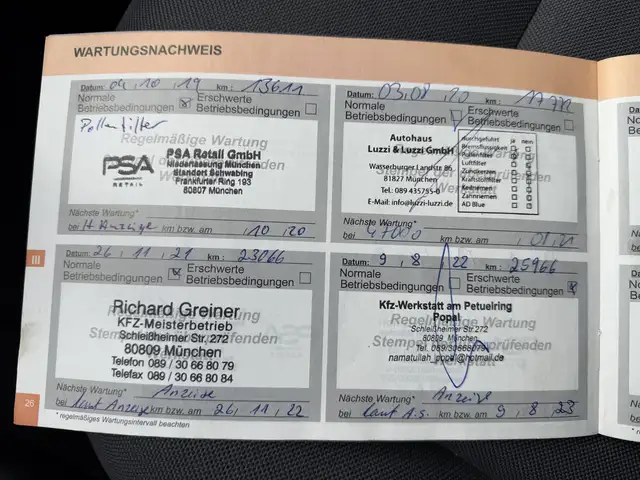 WARTUNGSNACHWEIS
Datum: 04, 10, 19 km: 13611
Normale Betriebsbedingungen Erschwerte Betriebsbedingungen
Pollenfilter
Regelmäßige Wartung
PSA RETAIL
PSA Retail GmbH
Niederlassung München
Standort Schwabing
Frankfurter Ring 193
80807 München
Nächste Wartung*
bei lt Anzeige km bzw. am 10, 20
Datum: 03, 08, 20 km: 17772
Normale Betriebsbedingungen Erschwerte Betriebsbedingungen
Regelmäßige Wartung
Autohaus
Luzzi & Luzzi GmbH
Wasserburger Landstr.
81827 München
Tel.: 089 435755-0
E-Mail: info@luzzi-luzzi.de
durchgeführt ja nein
Bremsflüssigkeit
Pollenfilter
Luftfilter
Zündkerzen
Kraftstofffilter
Keilriemen
Zahnriemen
AD Blue
Nächste Wartung*
bei km bzw. am
III
Datum: 26, 11, 21 km: 23066
Normale Betriebsbedingungen Erschwerte Betriebsbedingungen
Richard Greiner
KFZ-Meisterbetrieb
Schleißheimer Str. 272
80809 München
Telefon 089 / 30 66 80 79
Telefax 089 / 30 66 80 84
Nächste Wartung* Anzeige
bei laut Anzeige km bzw. am 26, 11, 22
Datum: 9, 8, 22 km: 25966
Normale Betriebsbedingungen Erschwerte Betriebsbedingungen
Regelmäßige Wartung
Kfz-Werkstatt am Petuelring
Popal
Schleißheimer Str. 272
80809 München
Tel. 089/30668079
namatullah_popal@hotmail.de
Nächste Wartung* Anzeige
bei laut A.S. km bzw. am 9, 8, 23
26
* regelmäßiges Wartungsintervall beachten